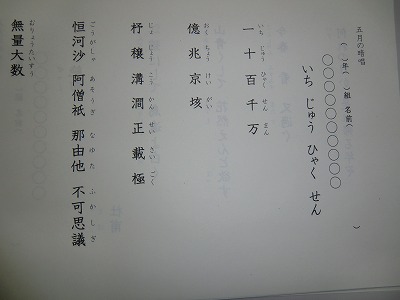 五月の暗唱
(　)年(　)組 名前(　　　)
〇〇〇〇〇〇〇〇〇〇
いち じゅう ひゃく せん
いち じゅう ひゃく せん まん
一 十 百 千 万
おく ちょう けい がい
億 兆 京 垓
じょ じょう こう かん せい さい ごく
杼 穣 溝 澗 正 載 極
ごうがしゃ あそうぎ なゆた ふかしぎ
恒河沙 阿僧祇 那由他 不可思議
むりょうたいすう
無量大数